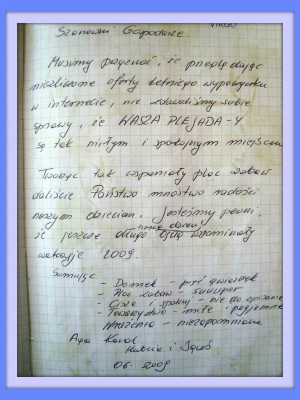 Szanowni Gospodarze.
Musimy przyznać, iż przeglądając
niezliczone oferty letniego wypoczynku
w internecie, nie zdawaliśmy sobie
sprawy, że WASZA PLEJADA-Y
są tak miłym i spokojnym miejscem
Tworząc tak wspaniały plac zabaw
daliście Państwo mnóstwo radości
naszym dzieciom. Jesteśmy pewni,
że jeszcze długo będą wspominały
wakacje 2009.
Sumując
- Domek - pięć gwiazdek
- Plac zabaw - super
- Cisza i spokój - nie do opisania
- Towarzystwo - miłe i przyjemne
- Wrażenia - niezapomniane
Aga Karol
Hubcio i
06. 2009